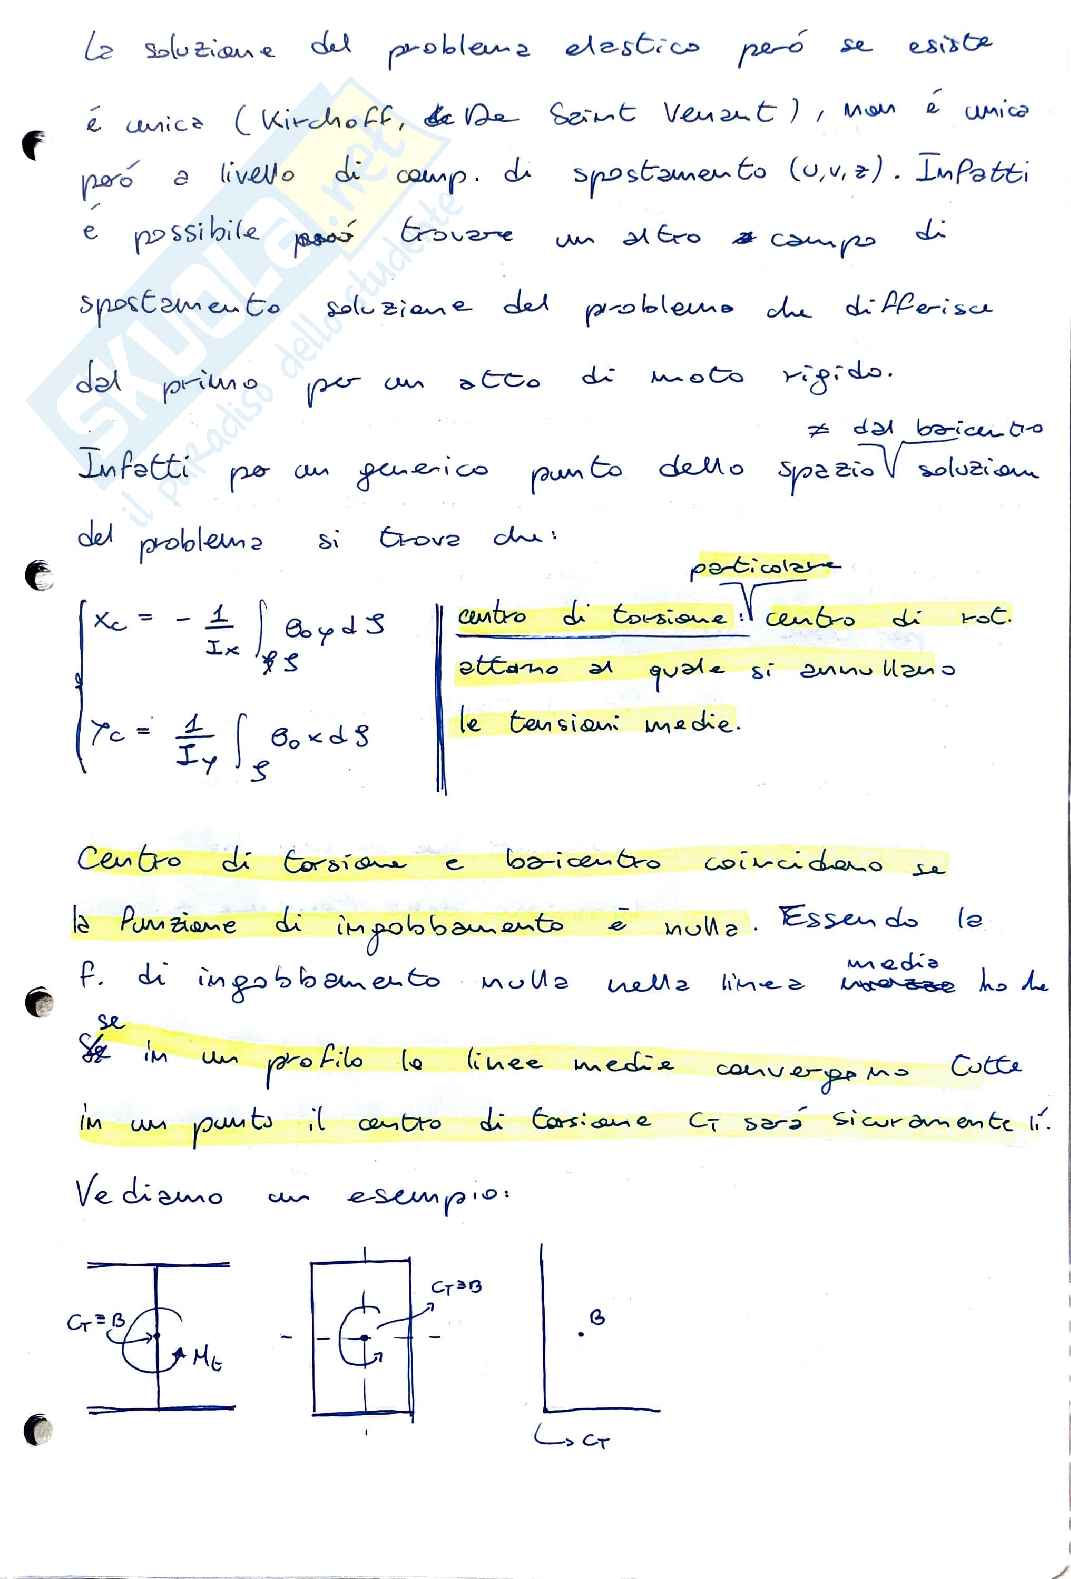 La soluzione del problema elastico peró se esiste
é unica (Kirchoff, De Saint Venant), non é unica
peró a livello di camp. di spostamento (u,v,z). Infatti
é possibile trovare un altro campo di
spostamento soluzione del problema che differisce
dal primo per un atto di moto rigido.
≠ dal baricentro
Infatti per un generico punto dello spazio soluzioni
del problema si trova che:
particolare
Xc = - 1/Ix ∫ϱ θ₀ y dϱ
centro di torsione: centro di rot.
attorno al quale si annullano
le tensioni medie.
Yc = 1/Iy ∫ϱ θ₀ x dϱ
Centro di torsione e baricentro coincidono se
la funzione di ingobbamento é nulla. Essendo la
f. di ingobbamento nulla nella linea media ho che
se in un profilo le linee medie convergono tutte
in un punto il centro di torsione CT sará sicuramente lí.
Vediamo un esempio:
CT≡B
Mt
CT≡B
B
CT
SKUOLA.net
il paradiso dello studente